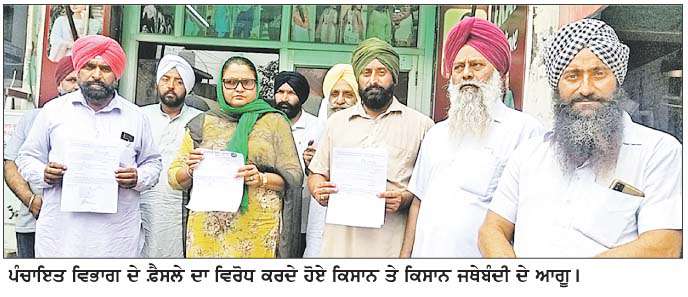 ਪੰਚਾਇਤ ਵਿਭਾਗ ਦੇ ਫ਼ੈਸਲੇ ਦਾ ਵਿਰੋਧ ਕਰਦੇ ਹੋਏ ਕਿਸਾਨ ਤੇ ਕਿਸਾਨ ਜਥੇਬੰਦੀ ਦੇ ਆਗੂ।